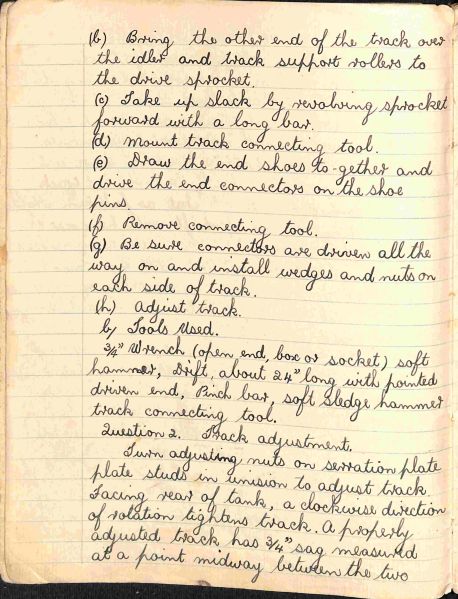 (b) Bring the other end of the track over
the idler and track support rollers to
the drive sprocket.
(c) Take up slack by revolving sprocket
forward with a long bar.
(d) Mount track connecting tool.
(e) Draw the end shoes to-gether and
drive the end connectors on the shoe
pins.
(f) Remove connecting tool.
(g) Be sure connectors are driven all the
way on and install wedges and nuts on
each side of track.
(h) Adjust track.
b, Tools Used.
3/4" Wrench (open end, box or socket) soft
hammer, Drift, about 24" long with pointed
driven end, Pinch bar, soft sledge hammer
track connecting tool.
Question 2. Track adjustment.
Turn adjusting nuts on serration plate
plate studs in unision to adjust track.
Facing rear of tank, a clockwise direction
of rotation tightens track. A properly
adjusted track has 3/4" sag measured
at a point midway between the two